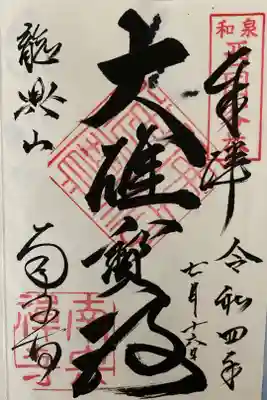 奉拝
令和四年
七月十六日
大雄寶殿
龍興山
南宗寺
和泉
南宗禅寺